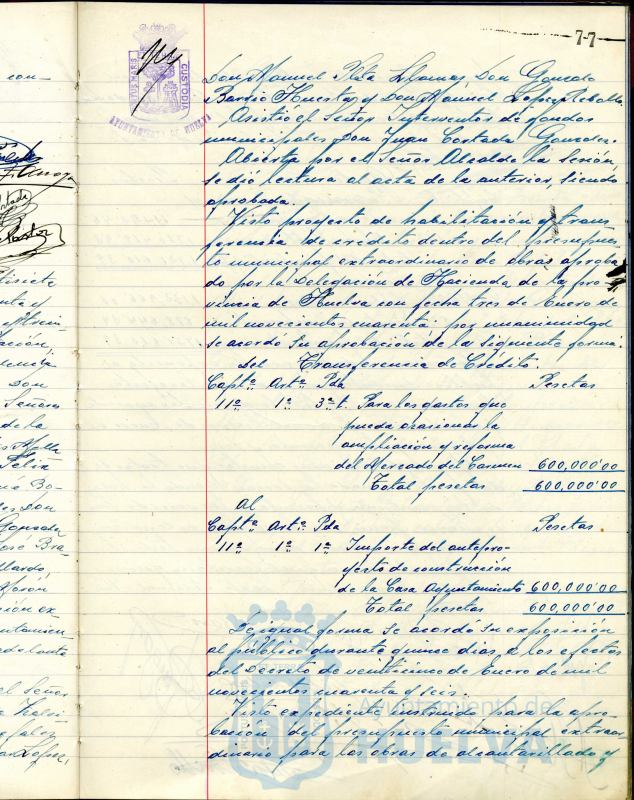 77
PORTUS MARIS
CUSTODIA
AYUNTAMIENTO DE HUELVA
Don Manuel Plata Llamas Don Gonzalo
Barrio Huesta y Don Manuel Lopez Rebollo
Asistió el Señor Interventor de fondos
municipales Don Juan Cortada Gonzalez.
Abierta por el Señor Alcalde la sesión,
se dió lectura al acta de la anterior, siendo
aprobada.
Visto proyecto de habilitación y trans
ferencia de crédito dentro del presupues-
to municipal extraordinario de obras aproba-
do por la Delegación de Hacienda de la pro-
vincia de Huelva con fecha tres de Enero de
mil novecientos cuarenta: por unanimidad
se acordó su aprobación de la siguiente forma:
Del Transferencia de Crédito.
Captº Artº Pda Pesetas
11º 1º 3ª t. Para los gastos que
pueda ocasionar la
ampliación y reforma
del Mercado del Carmen 600,000'00
Total pesetas 600,000'00
al
Captº Artº Pda Pesetas
11º 1º 1ª Importe del antepro-
yecto de construcción
de la Casa Ayuntamiento 600,000'00
Total pesetas 600,000'00
De igual forma se acordó su exposición
al público durante quince dias, a los efectos
del Decreto de veinticinco de Enero de mil
novecientos cuarenta y seis.
Visto expediente instruido para la apro-
bación del presupuesto municipal extraor
dinario para las obras de alcantarillado y
Ayuntamiento de
HUELVA